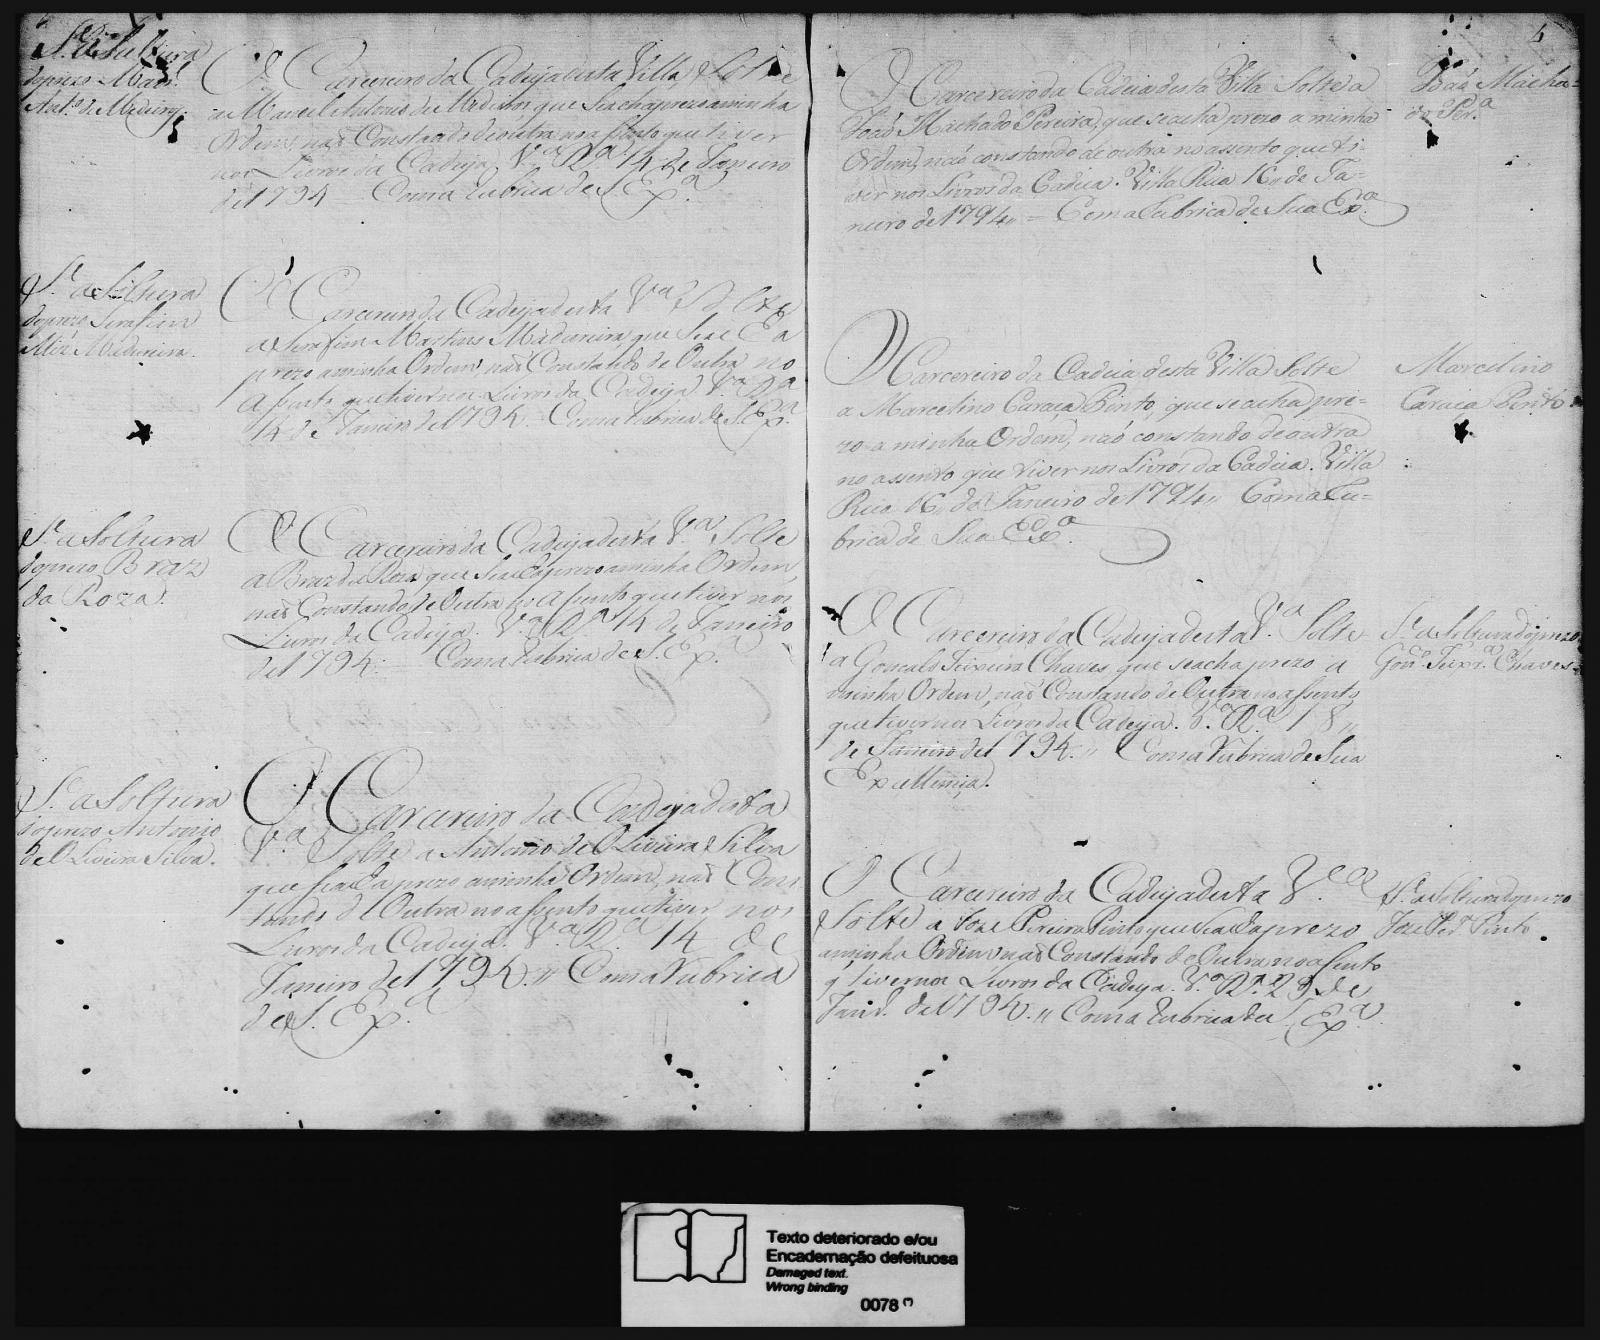 S.e a Soltura
do prezo Mael.
Ant.o de Medeiros
O Carcereiro da Cadeya desta Villa Solte
a Manoel Antonio de Medeiros que Se acha prezo a minha
Ordem, naõ Constando de outra no aSsento que tiver
nos Livros da Cadeya V.a R.a 14 de Janeiro
de 1794 = Com a rubrica de S. Ex.a
S.e a Soltura
do prezo Serafim
Miz Madureira.
O Carcereiro da Cadeya desta V.a Solte
a Serafim Martins Madureira, que Se ac Ea
prezo a minha Ordem, naõ Constando de Outra no
aSsento que tiver nos Livros da Cadeya V.a R.a
14 de Janeiro de 1794. Com a rubrica de S. Ex.a
S.e a Soltura
do prezo Braz
da Roza.
O Carcereiro da Cadeya desta V.a Solte
a Braz da Roza, que Se ac Ea prezo a minha Ordem,
naõ Constando de Outra no aSsento que tiver nos
Livros da Cadeya. V.a R.a 14 de Janeiro
de 1794. = Com a rubrica de S. Ex.a
S.e a Soltura
do prezo Antonio
de OLiveira Silva.
O Carcereiro da Cadeya desta
V.a Solte a Antonio de OLiveira e Silva
que Se ac Ea prezo a minha Ordem, naõ Cons
tando de Outra no aSsento que tiver nos
Livros da Cadeya. V.a R.a 14 de
Janeiro de 1794. " Com a Rubrica
de S. Ex.a
4
O Carcereiro da Cadeia desta Villa Solte a
Joaõ Machado Pereira, que se acha prezo a minha
Ordem, naõ constando de outra no assento que ti-
ver nos Livros da Cadeia. Villa Rica 16 " de Ja-
neiro de 1794 " = Com a Rubrica de Sua Ex.a
Joaõ Macha-
do Per.a
O Carcereiro da Cadeia desta Villa Solte
a Marcelino Caraça Pinto, que se acha pre-
zo a minha Ordem, naõ constando de outra
no assento que tiver nos Livros da Cadeia. Villa
Rica 16 " de Janeiro de 1794 " Com a Ru-
brica de Sua Ex.a
Marcelino
Caraça Pinto
O Carcereiro da Cadeya desta V.a Solte
a Goncalo Teixeira Chaves, que se acha prezo a
minha Ordem, naõ Constando de Outra no aSsento
que tiver nos Livros da Cadeya. V.a R.a 18 "
de Janeiro de 1794. " Com a Rubrica de Sua
Excellencia.
S.e a Soltura do prezo
Gon.co Teix.ra Chaves
O Carcereiro da Cadeya desta V.a
Solte a Joze Pereira Pinto que Se ac Ea prezo
a minha Ordem, naõ Constando de Outra no aSsento
q tiver nos Livros da Cadeya. V.a R.a 29 de
Janr.o de 1794. " Com a rubrica de S. Ex.a
S.e a Soltura do prezo
Joze Per.a Pinto
Texto deteriorado e/ou
Encadernação defeituosa
Damaged text.
Wrong binding
0078 (*)